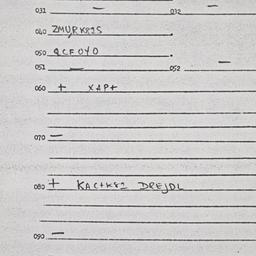 031 – 032 –
040 ZMURKRIS .
050 QCFOYO .
051 – 052 –
060 + XAP+
070 –
080 + DREJDL
090 –